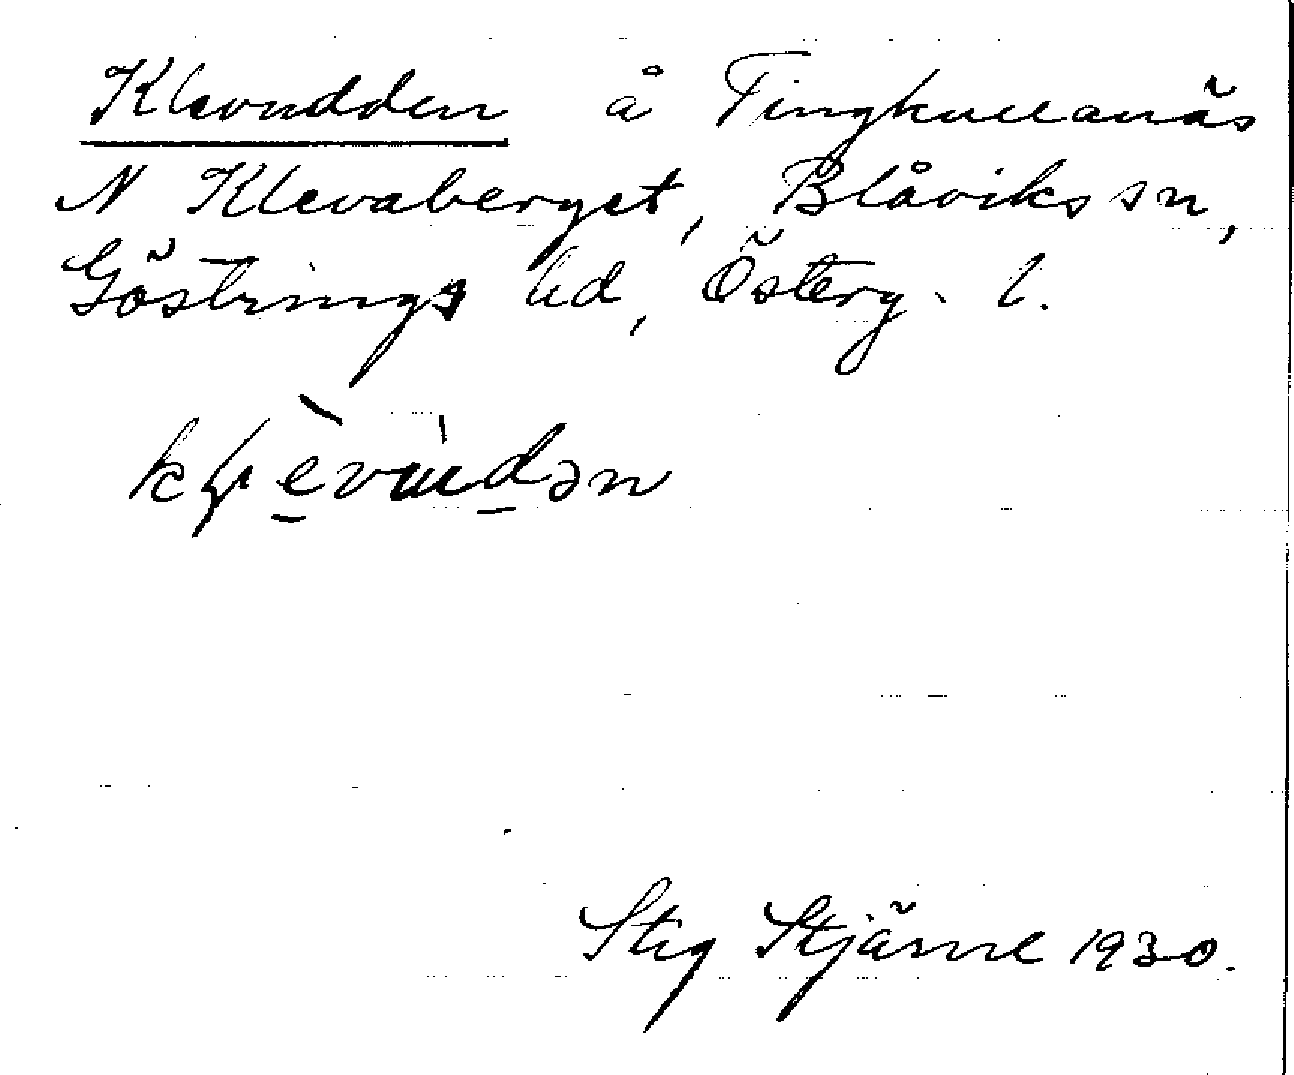 Klevudden å Tingkullanäs
N Klevaberget, Blåviks sn,
Göstrings hd, Österg. l.
kḷèvùdən
Stig Stjärne 1930.